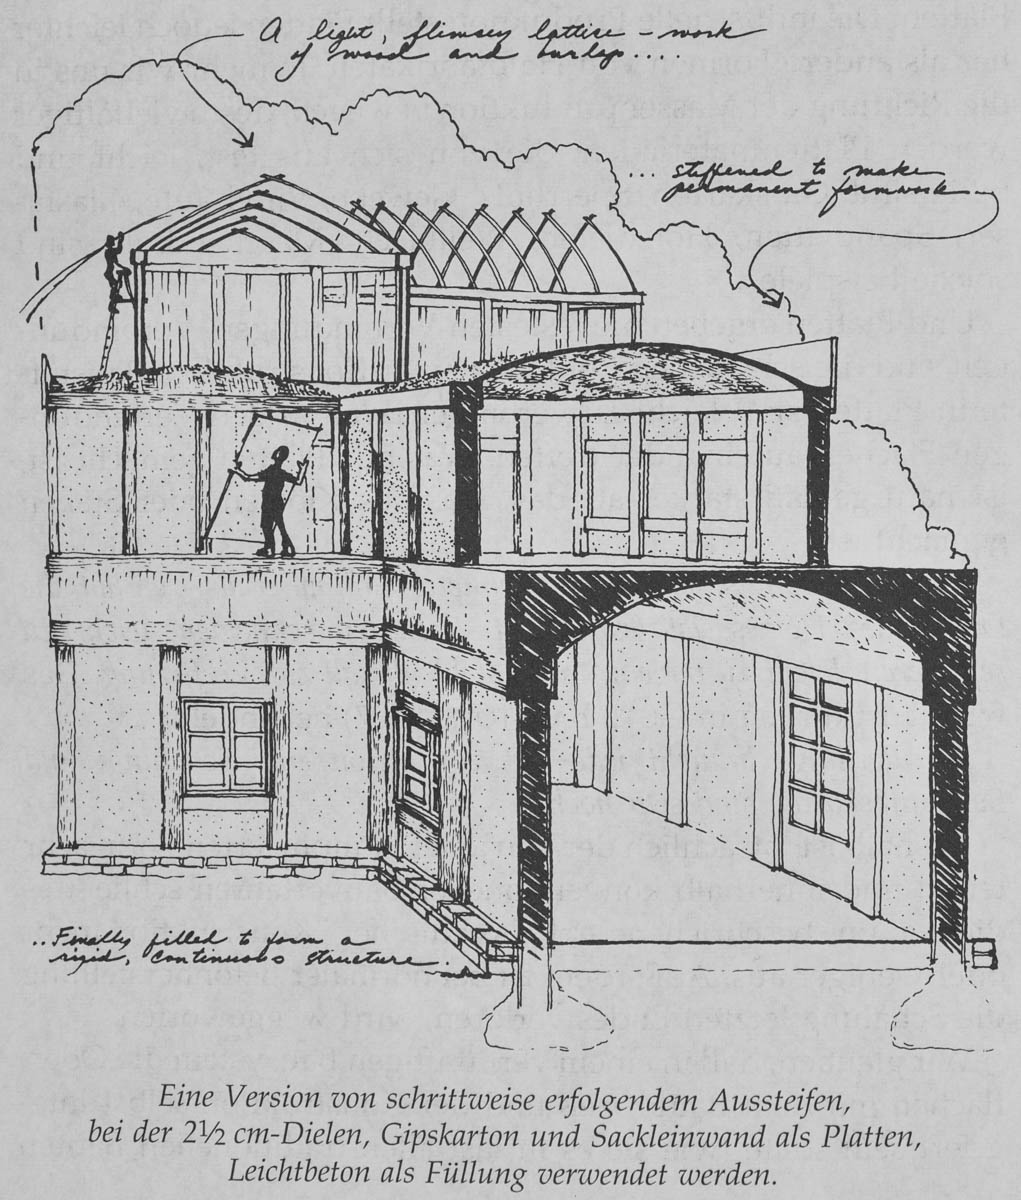 A light, flimsey lattice-work
of wood and burlap....
... stiffened to make
permanent formwork...
..Finally filled to form a
rigid, continuous structure.
Eine Version von schrittweise erfolgendem Aussteifen,
bei der 2½ cm-Dielen, Gipskarton und Sackleinwand als Platten,
Leichtbeton als Füllung verwendet werden.